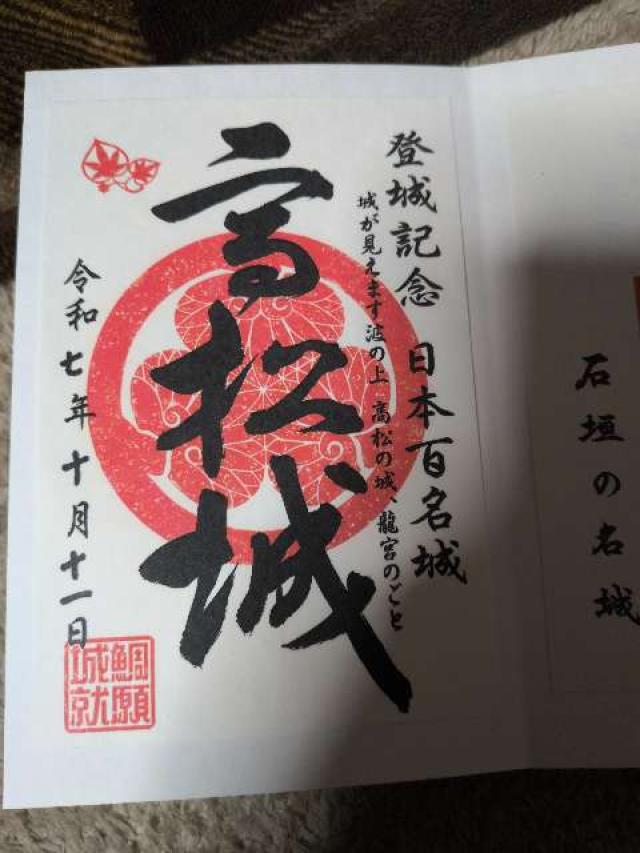 石垣の名城
登城記念 日本百名城
城が見えます波の上 高松の城、龍宮のごと
高松城
令和七年十月十一日
鯛願
城就